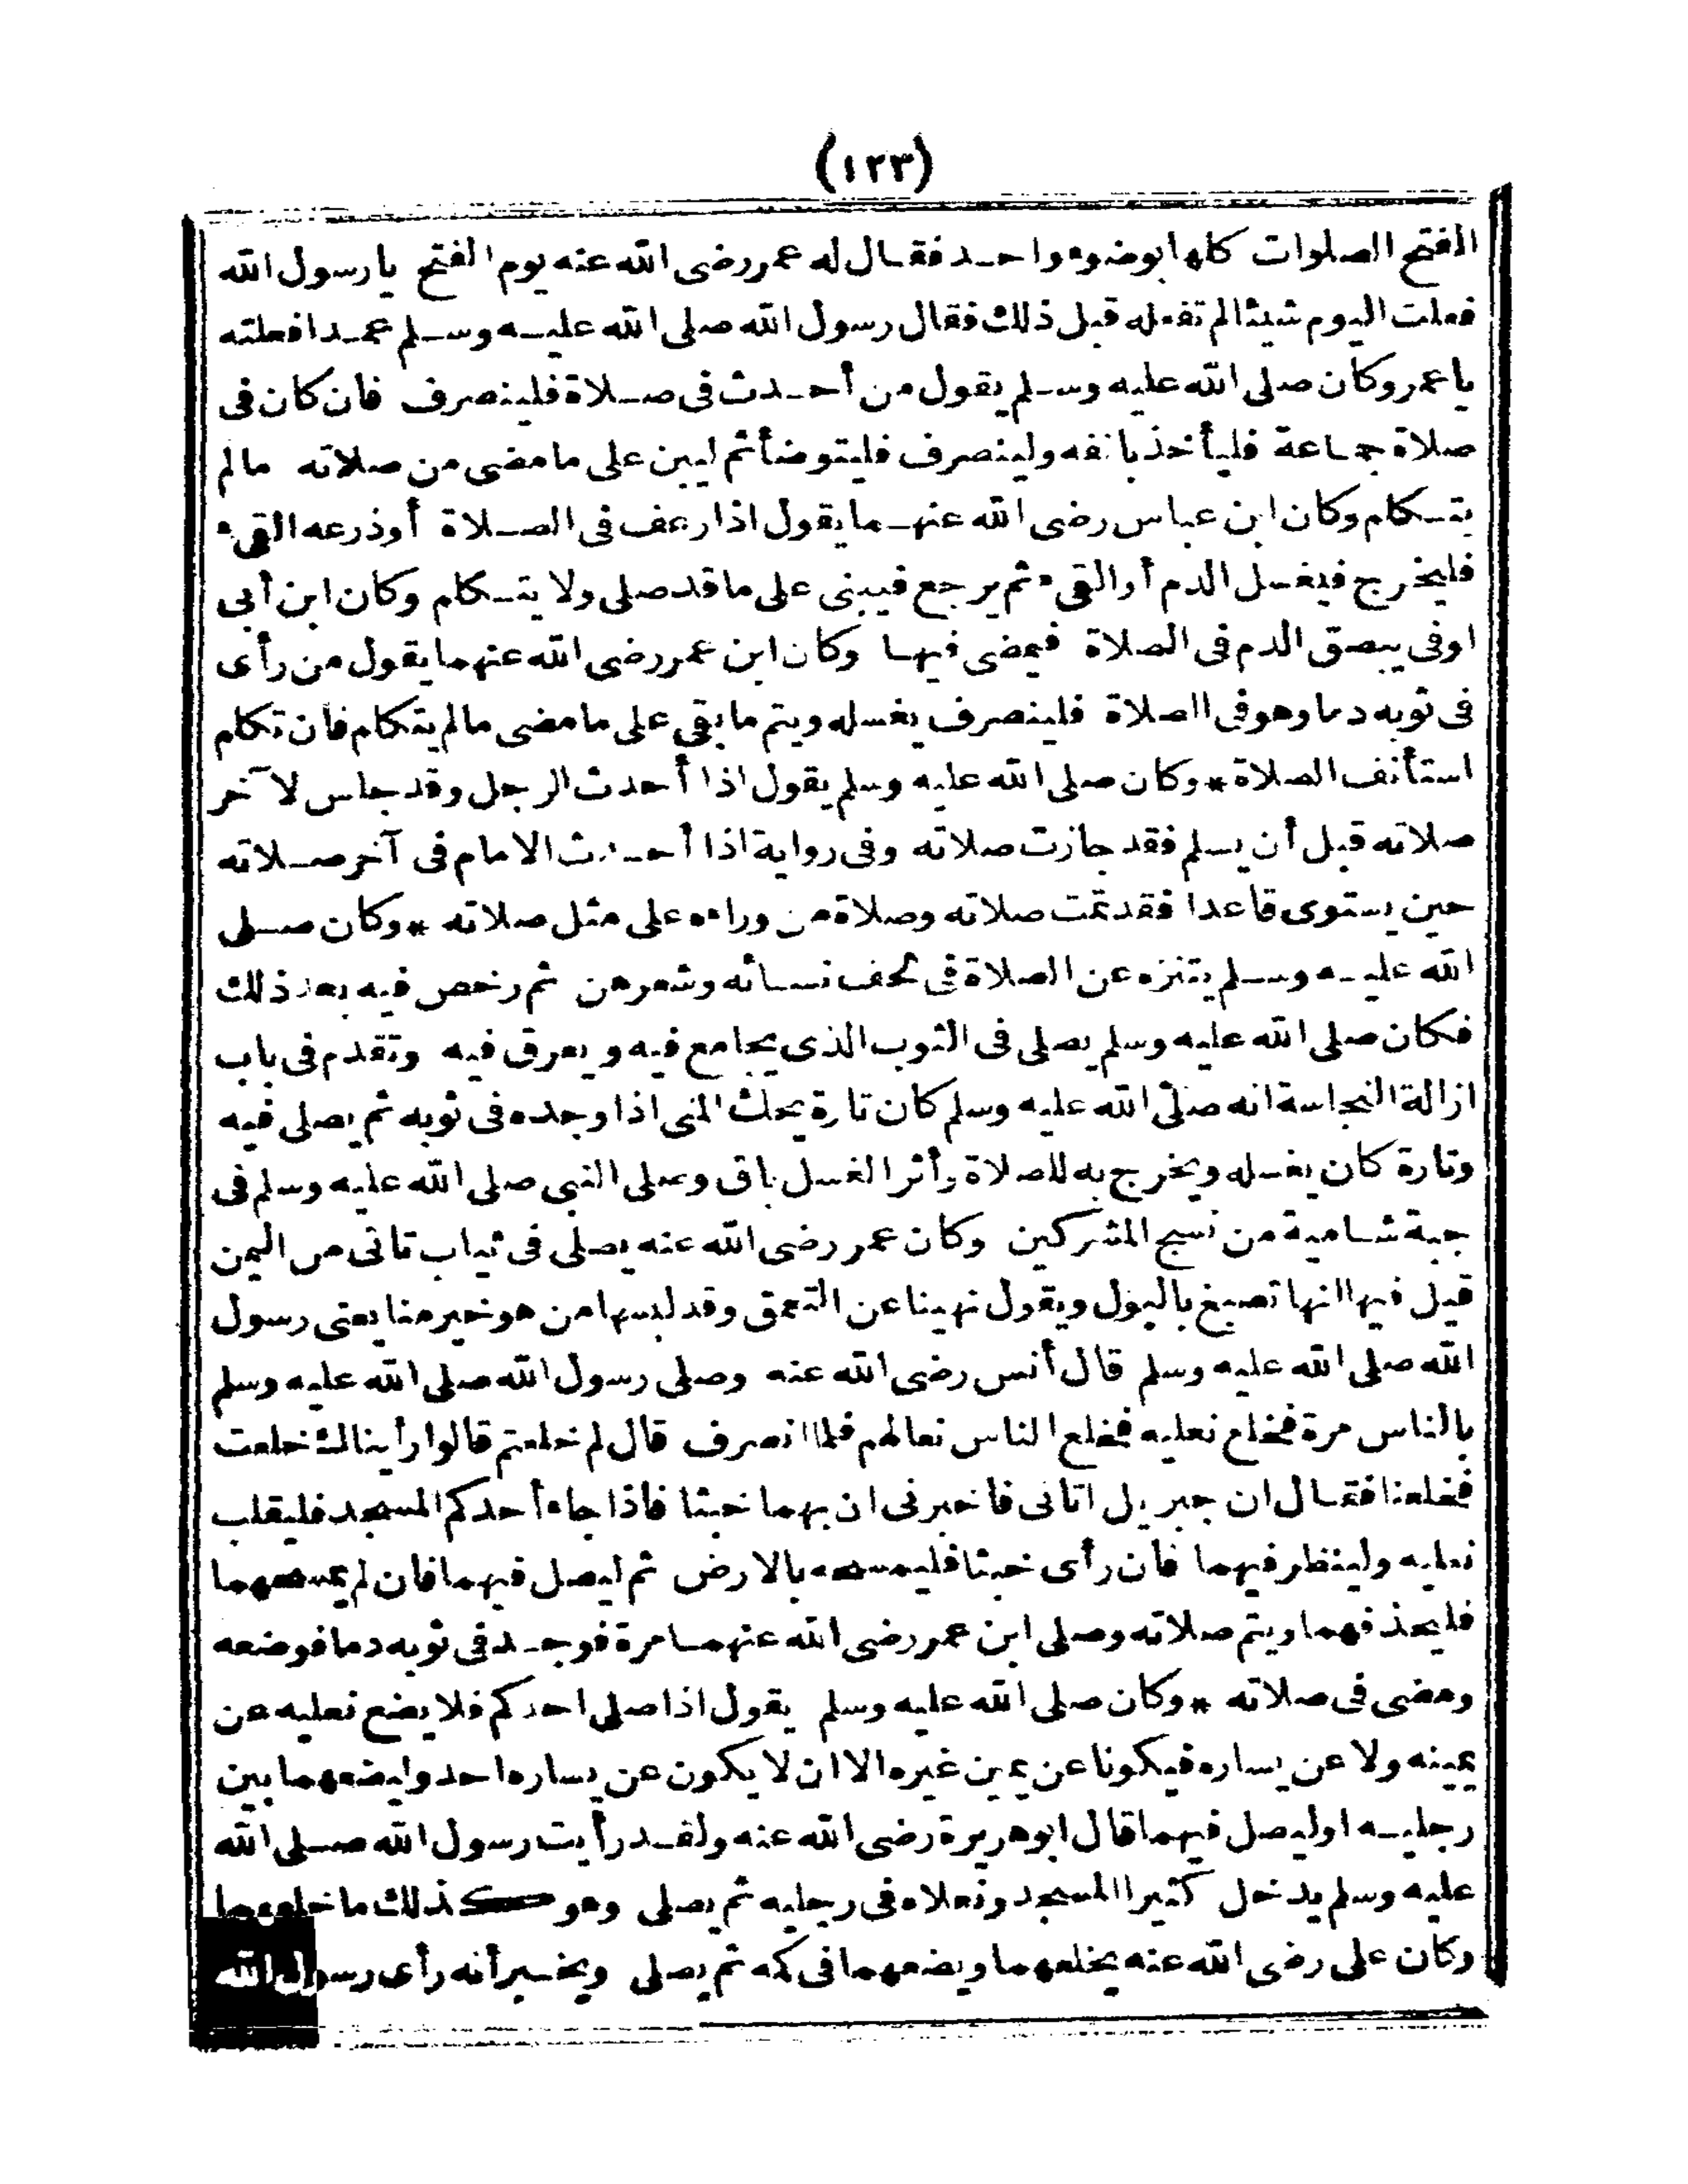 (١٢٣)
الفتح الصلوات كلها بوضوء واحد فقال له عمر رضى الله عنه يوم الفتح يا رسول الله
فعلت اليوم شيئا لم تفعله قبل ذلك فقال رسول الله صلى الله عليه وسلم عمدا فعلته
يا عمر وكان صلى الله عليه وسلم يقول من أحدث فى صلاة فلينصرف فان كان فى
صلاة جماعة فليأخذ بانفه ولينصرف فليتوضأ ثم ليبن على ما مضى من صلاته مالم
يتكلم وكان ابن عباس رضى الله عنهما يقول اذا رعف فى الصلاة أو ذرعه القىء
فليخرج فيغسل الدم أو القىء ثم يرجع فيبنى على ما قد صلى ولا يتكلم وكان ابن أبى
اوفى يبصق الدم فى الصلاة فيمضى فيها وكان ابن عمر رضى الله عنهما يقول من رأى
فى ثوبه دما وهو فى الصلاة فلينصرف يغسله ويتم ما بقى على ما مضى مالم يتكلم فان تكلم
استأنف الصلاة * وكان صلى الله عليه وسلم يقول اذا أحدث الرجل وقد جلس لآخر
صلاته قبل أن يسلم فقد جازت صلاته وفى رواية اذا أحدث الامام فى آخر صلاته
حين يستوى قاعدا فقد تمت صلاته وصلاة من وراءه على مثل صلاته * وكان صلى
الله عليه وسلم يتنزه عن الصلاة فى لحف نسائه وشعرهن ثم رخص فيه بعد ذلك
فكان صلى الله عليه وسلم يصلى فى الثوب الذى يجامع فيه ويعرق فيه وتقدم فى باب
ازالة النجاسة انه صلى الله عليه وسلم كان تارة يحك المنى اذا وجده فى ثوبه ثم يصلى فيه
وتارة كان يغسله ويخرج به للصلاة وأثر الغسل باق وصلى النبى صلى الله عليه وسلم فى
جبة شامية من نسج المشركين وكان عمر رضى الله عنه يصلى فى ثياب تاتى من اليمن
قيل فيها انها تصبغ بالبول ويقول نهينا عن التعمق وقد لبسها من هو خير منا يعنى رسول
الله صلى الله عليه وسلم قال أنس رضى الله عنه وصلى رسول الله صلى الله عليه وسلم
بالناس مرة فخلع نعليه فخلع الناس نعالهم فلما انصرف قال لم خلعتم قالوا رأيناك خلعت
فخلعنا فقال ان جبريل اتانى فأخبرنى ان بهما خبثا فاذا جاء أحدكم المسجد فليقلب
نعليه ولينظر فيهما فان رأى خبثا فليمسحه بالارض ثم ليصل فيهما فان لم يمسحهما
فليحذفهما ويتم صلاته وصلى ابن عمر رضى الله عنهما مرة فوجد فى ثوبه دما فوضعه
ومضى فى صلاته * وكان صلى الله عليه وسلم يقول اذا صلى احدكم فلا يضع نعليه عن
يمينه ولا عن يساره فيكونا عن يمين غيره الا ان لا يكون عن يساره احد وليضعهما بين
رجليه او ليصل فيهما قال ابو هريرة رضى الله عنه ولقد رأيت رسول الله صلى الله
عليه وسلم يدخل كثيرا المسجد ونعلاه فى رجليه ثم يصلى وهو كذلك ما خلعهما
وكان على رضى الله عنه يخلعهما ويضعهما فى كمه ثم يصلى ويخبر أنه رأى رسول الله